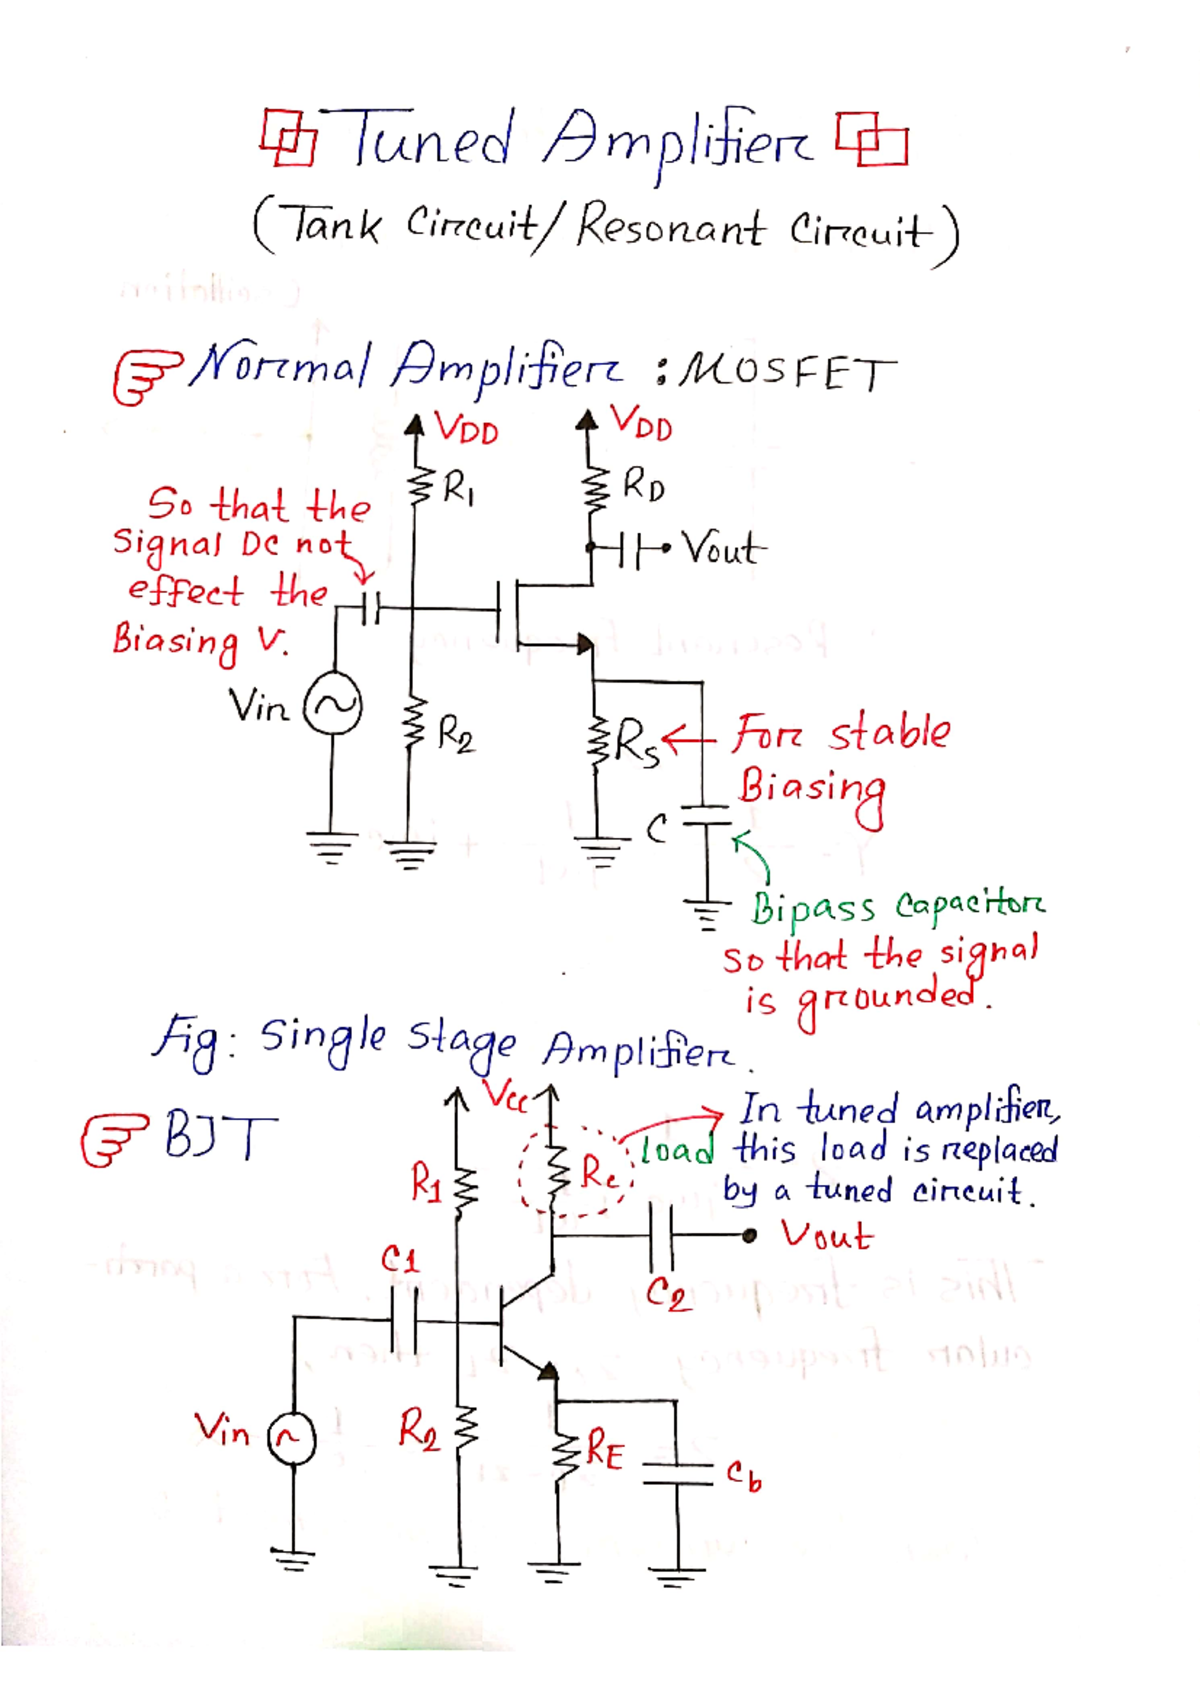 Tuned Amplifier
(Tank Circuit/Resonant Circuit)
Normal Amplifier : MOSFET
VDD
VDD
R1
RD
So that the
Signal DC not
effect the
Biasing V.
Vout
Vin
R2
Rs
For stable
Biasing
C
Bipass Capacitor
so that the signal
is grounded.
Fig: Single Stage Amplifier.
BJT
Vcc
In tuned amplifier,
load this load is replaced
by a tuned circuit.
R1
Rc
Vout
C1
C2
Vin
R2
RE
Cb